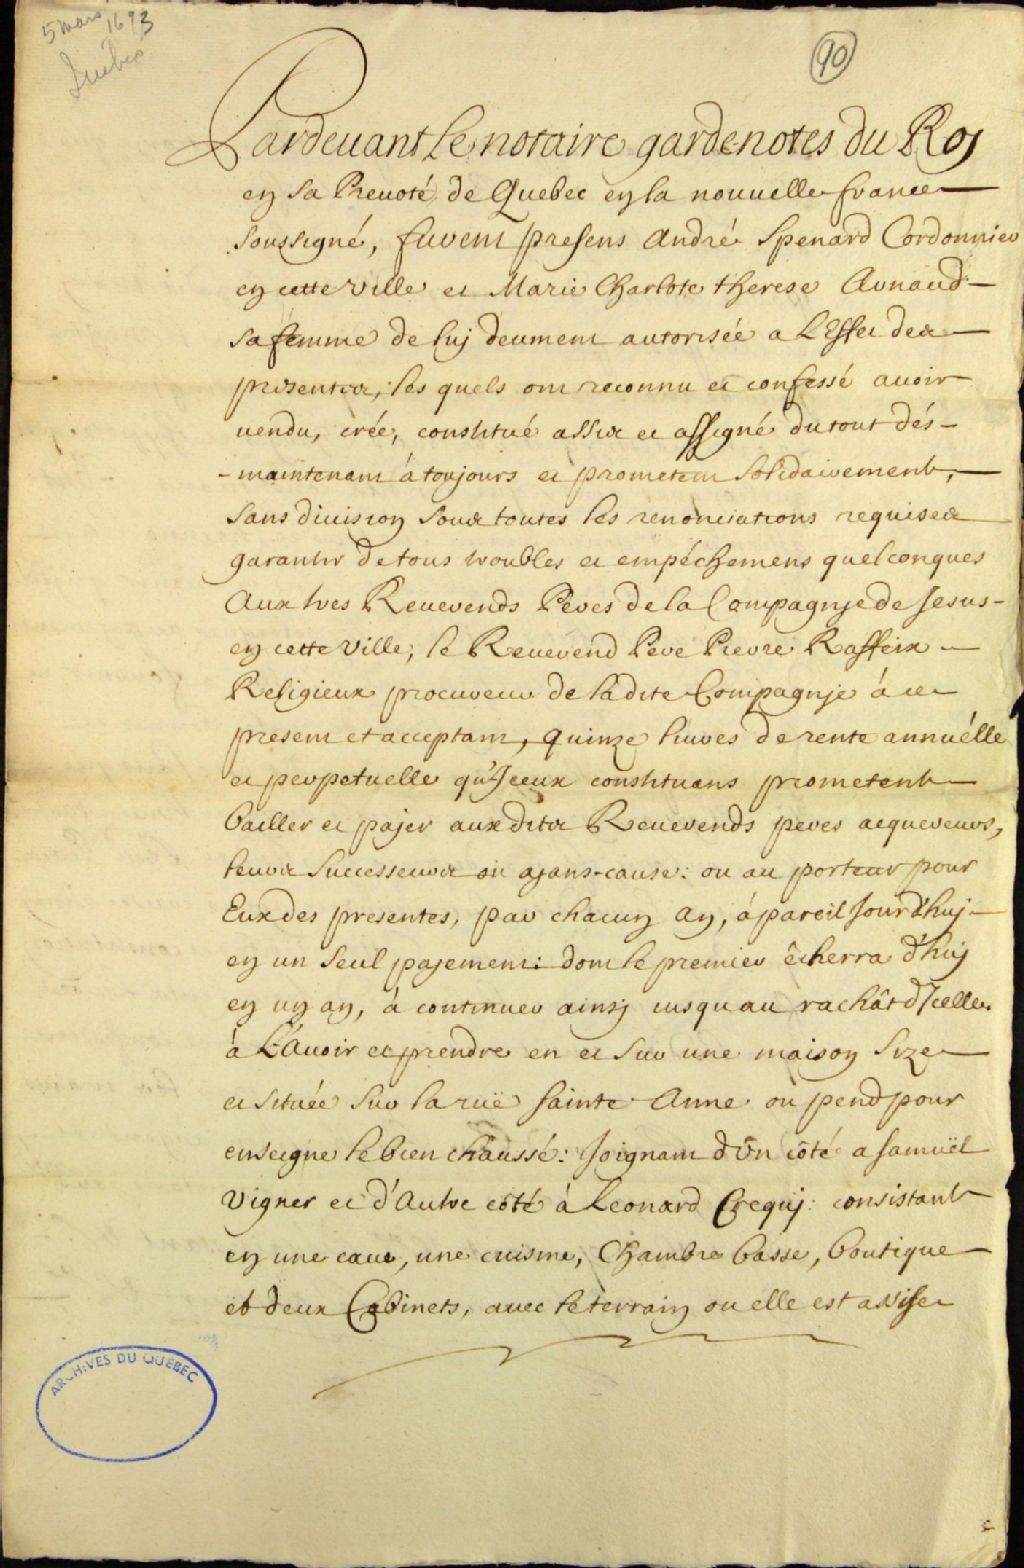 5 mars 1693
Québec
90
Pardevant Le notaire gardenotes du Roy
en Sa Prevoté de Quebec en la nouvelle france
Soussigné, furent presens André Spenard Cordonnier
en cette Ville et Marie Charlote therese Arnaud
sa femme de luy deument autorisée a L'Effet des
presentes, les quels ont reconnu et confessé avoir
vendu, créé, constitué assis et assigné du tout dés-
-maintenant à toujours et prometent Solidairement,
Sans division Sous toutes les renonciations requises
garantir de tous troubles et empéchemens quelconques
Aux tres Reverends Peres de la Compagnje de Jesus-
en cette Ville; le Reverend Pere Pierre Raffeix
Religieux procureur de ladite Compagnje à ce
present et acceptant, quinze livres de rente annuélle
et perpetuelle qu'Jceux constituans prometent
bailler et pajer auxdits Reverends peres acquereurs,
leurs Successeurs ou ajans-cause: ou au porteur pour
Eux des presentes, par chacun an, à pareil Jourd'huj
en un Seul pajement: dont le premier êcherra d'huj
en un an, à continuer ainsj jusqu'au rachât d'Jcelle.
à L'Avoir et prendre en et Sur une maison Size
et Située Sur la ruë Sainte Anne où pend pour
enseigne le bien chaussé: Joignant d'Un côté a Samuël
Vigner et d'Autre côté à Leonard Crequj: consistant
en une cave, une cuisine, Chambre basse, boutique
et deux Cabinets, avec le terrain ou elle est assise
ARCHIVES DU QUEBEC